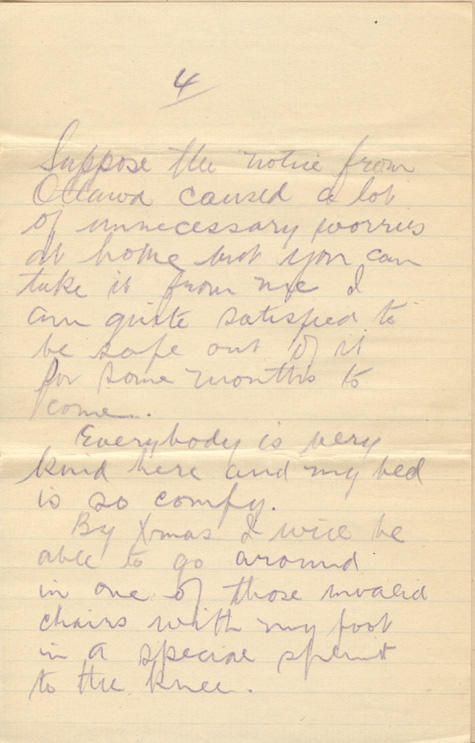 4
Suppose the notice from
Ottawa caused a lot
of unnecessary worries
at home but you can
take it from me I
am quite satisfied to
be safe out of it
for some months to
come.
Everybody is very
kind here and my bed
is so comfy.
By Xmas I will be
able to go around
in one of those invalid
chairs with my foot
in a special splint
to the knee.